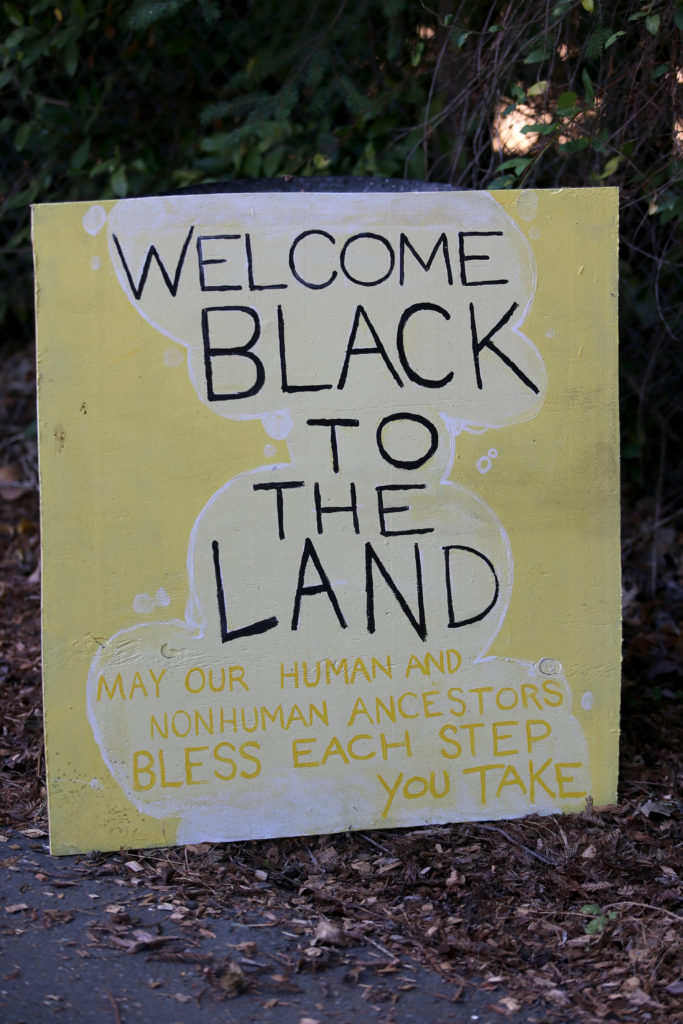 WELCOME
BLACK
TO
THE
LAND
MAY OUR HUMAN AND
NONHUMAN ANCESTORS
BLESS EACH STEP
YOU TAKE